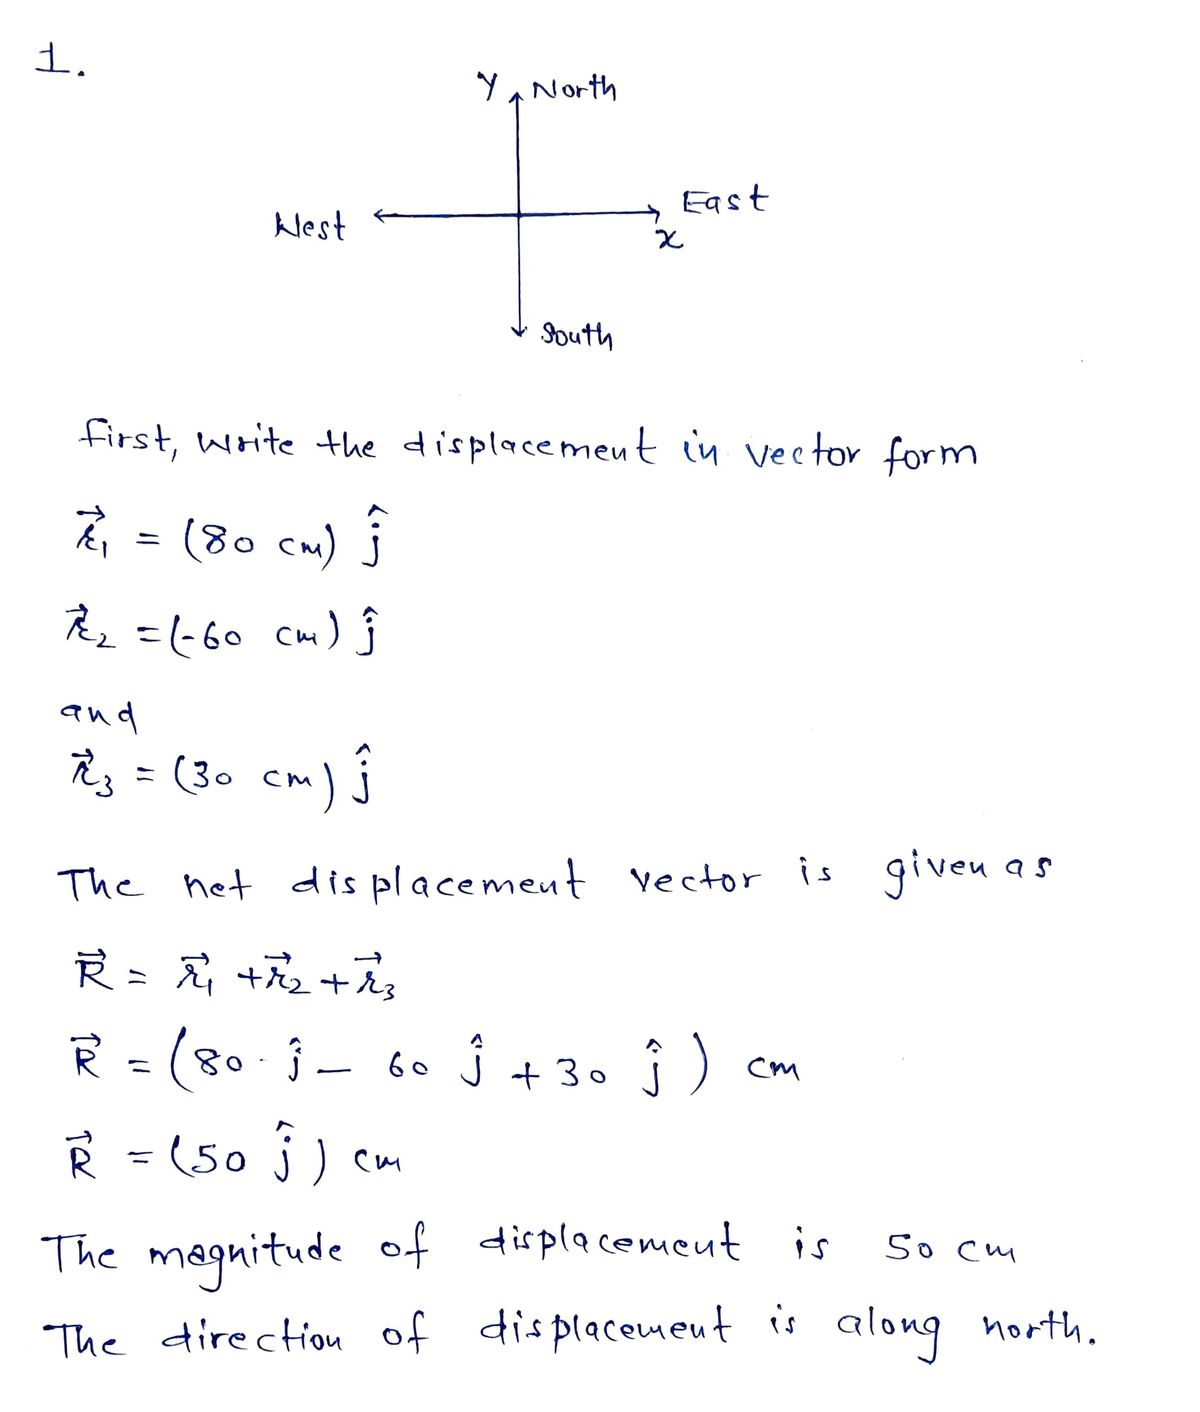 1.
Y North
East
West
x
South
first, write the displacement in vector form
r⃗₁ = (80 cm) ĵ
r⃗₂ = (-60 cm) ĵ
and
r⃗₃ = (30 cm) ĵ
The net displacement vector is given as
R⃗ = r⃗₁ + r⃗₂ + r⃗₃
R⃗ = (80 ĵ - 60 ĵ + 30 ĵ) cm
R⃗ = (50 ĵ) cm
The magnitude of displacement is 50 cm
The direction of displacement is along north.